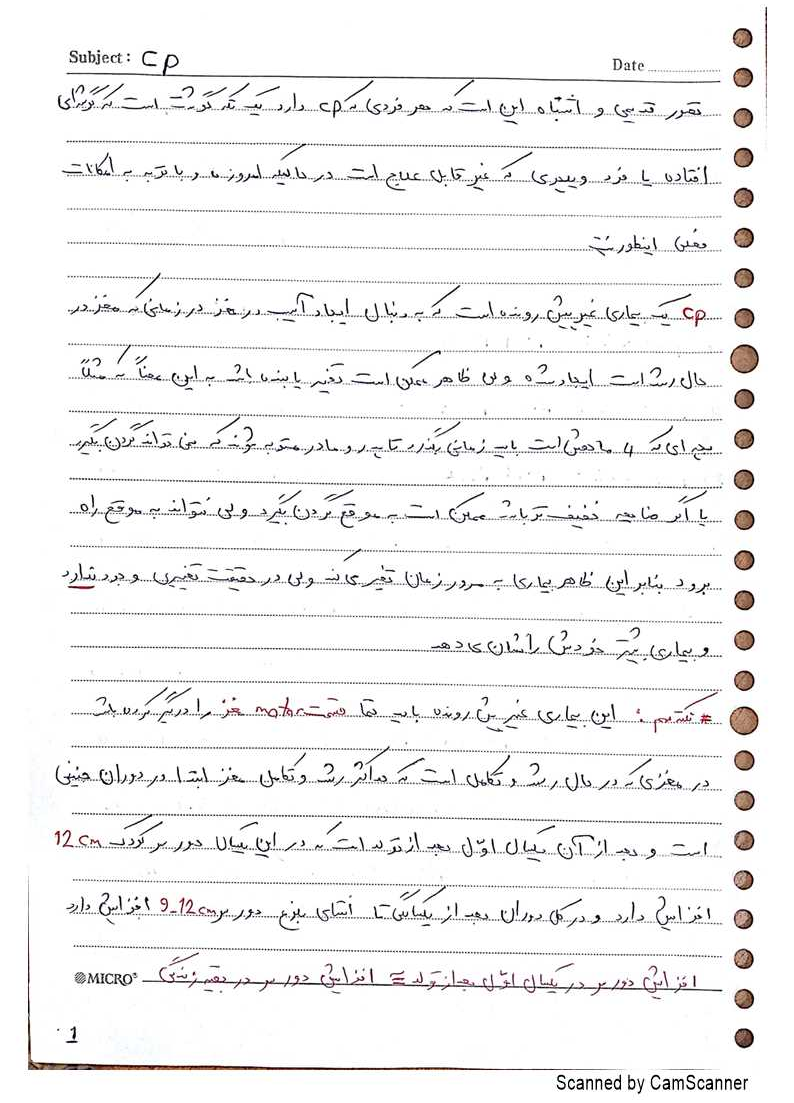 Subject: CP
Date
تصور قدیمی و اشتباه این است که هر فردی که CP دارد یک تکه گوشت است که گوشه‌ای
افتاده یا فرد ویلچری که غیر قابل علاج است در حالیکه امروزه و با توجه به امکانات
فعلی اینطور نیست
CP یک بیماری غیر پیش رونده است که به دنبال ایجاد آسیب در مغز در زمانی که مغز در
حال رشد است ایجاد شده ولی ظاهر ممکن است تغییر یابنده باشد به این معنا که مثلاً
بچه ای که 4 ماهش است باید زمانی بگذرد تا پدر و مادر متوجه شوند که نمی تواند گردن بگیرد
یا اگر ضایعه خفیف تر باشد ممکن است به موقع گردن بگیرد ولی نتواند به موقع راه
برود بنابراین ظاهر بیماری به مرور زمان تغییر می کند ولی در حقیقت تغییری وجود ندارد
و بیماری بیشتر خودش را نشان می دهد
# نکته مهم : این بیماری غیر پیش رونده باید حتما قسمت motor مغز را درگیر کرده باشد
در مغزی که در حال رشد و تکامل است که حداکثر رشد و تکامل مغز ابتدا در دوران جنینی
است و بعد از آن یکسال اوّل بعد از تولد است که در این یکسال دور سر کودک 12 cm
افزایش دارد و در کل دوران بعد از یکسالگی تا انتهای بلوغ دور سر 9-12 cm افزایش دارد
افزایش دور سر در یکسال اوّل بعد از تولد ≅ افزایش دور سر در بقیه زندگی
MICRO
1
Scanned by CamScanner